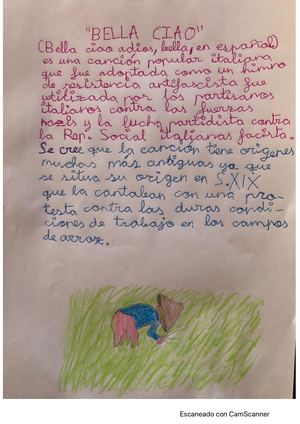 "BELLA CIAO"
(Bella ciao adios, bella, en español)
es una canción popular italiana
que fue adoptada como un himno
de resistencia antifascista fue
utilizada por los partisinos
italianos contra las fuerzas
nazis y la lucha partidista contra
la Rep. Social italianas facista.
Se cree que la canción tiene orígenes
muchas más antiguas ya que
se situa su origen en S.XIX
que la cantalean con una pro-
testa contra las duras condi-
ciones de trabajo en los campos
de arroz.
Escaneado con CamScanner